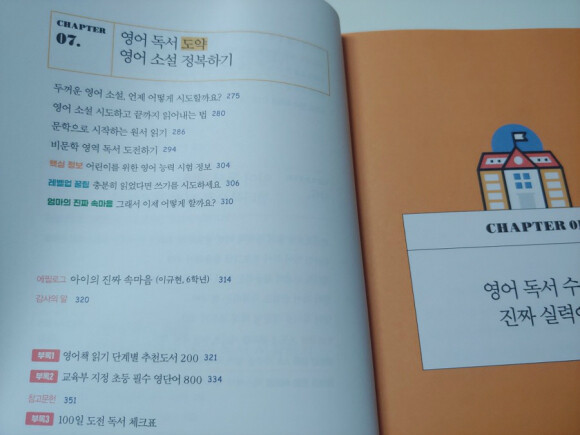 CHAPTER
07.
영어 독서 도약
영어 소설 정복하기
두꺼운 영어 소설, 언제 어떻게 시도할까요? 275
영어 소설 시도하고 끝까지 읽어내는 법 280
문학으로 시작하는 원서 읽기 286
비문학 영역 독서 도전하기 294
핵심 정보 어린이를 위한 영어 능력 시험 정보 304
레벨업 꿀팁 충분히 읽었다면 쓰기를 시도하세요 306
엄마의 진짜 속마음 그래서 이제 어떻게 할까요? 310
에필로그 아이의 진짜 속마음 (이규현, 6학년) 314
감사의 말 320
부록1 영어책 읽기 단계별 추천도서 200 321
부록2 교육부 지정 초등 필수 영단어 800 334
참고문헌 351
부록3 100일 도전 독서 체크표
CHAPTER 0
영어 독서 수
진짜 실력